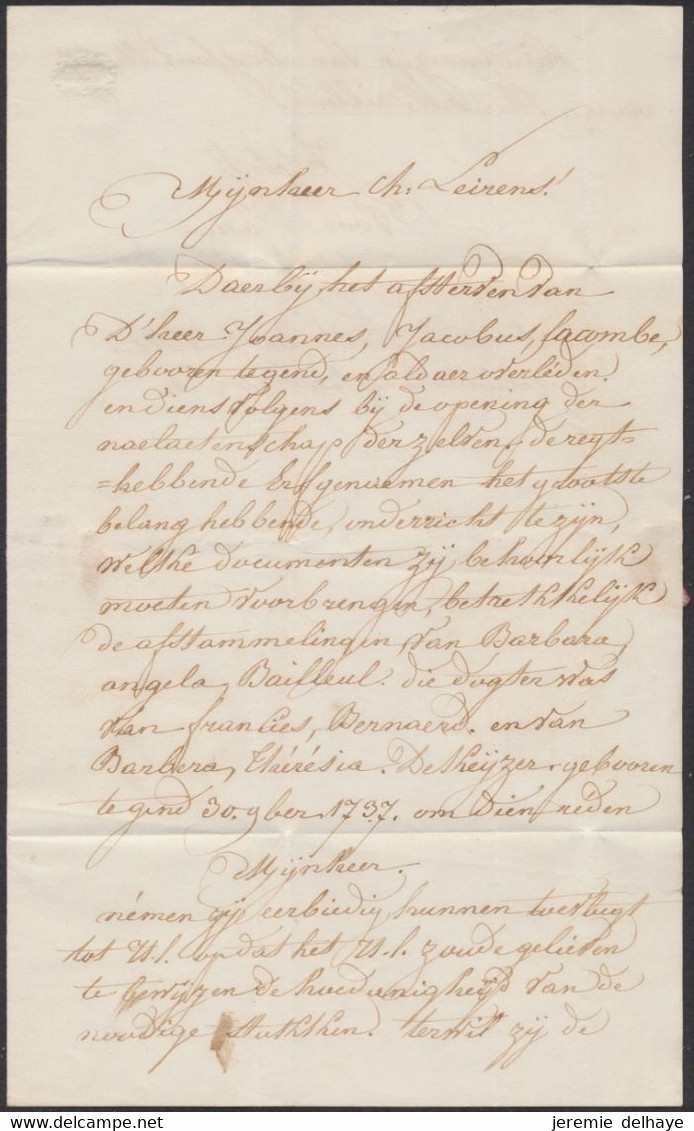 Mÿnheer Ch: Leirens!
Daer bÿ het afsterven van
D'heer Joannes, Jacobus, Lacombe,
gebooren te gend, en aldaer overléden.
en diens volgens bÿ de opening der
naelaetenschap der zelven, de regt=
=hebbende Erfgenaemen het grootste
belang hebbende, onderricht te zÿn,
welke documenten zÿ behoorlÿk
moeten voorbrengen, betrekkelÿk
de afstammelingen van Barbara,
angela, Bailleul. die dogter was
van francies, Bernaerd. en van
Barbera, Thérésia. De Keÿzer. gebooren
te gend 30. 9ber 1737. om dien réden
Mÿnheer.
némen zÿ eerbiedig hunnen toevlugt
tot U.l. op dat het U.l. zoude gelieven
te bewÿzen de hoedanigheÿd van de
noodige stukken. terwil zÿ de
delcampe.net
jeremie delhaye